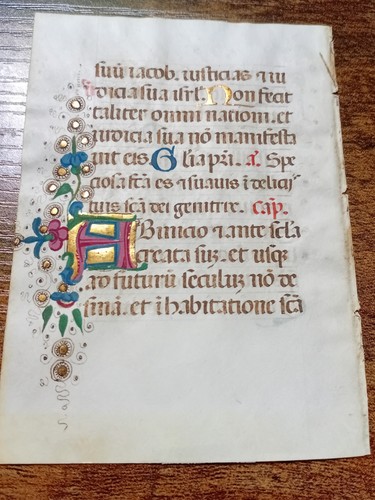 suū iacob. iusticias ⁊ iu
dicia sua isrl̄. Non fecit
taliter omni nationi. et
iudicia sua nō manifesta
uit eis. Gl̄ia pr̄i. a̅. Spe
ciosa fc̄a es ⁊ suauis ī delicijˢ
tuis sc̄a dei genitrix. Cap̄.
AB inicio ⁊ ante scl̄a
creata suȝ. et usqȝ
ad futurū seculuȝ nō de
sinā. et ī habitatione sc̄a